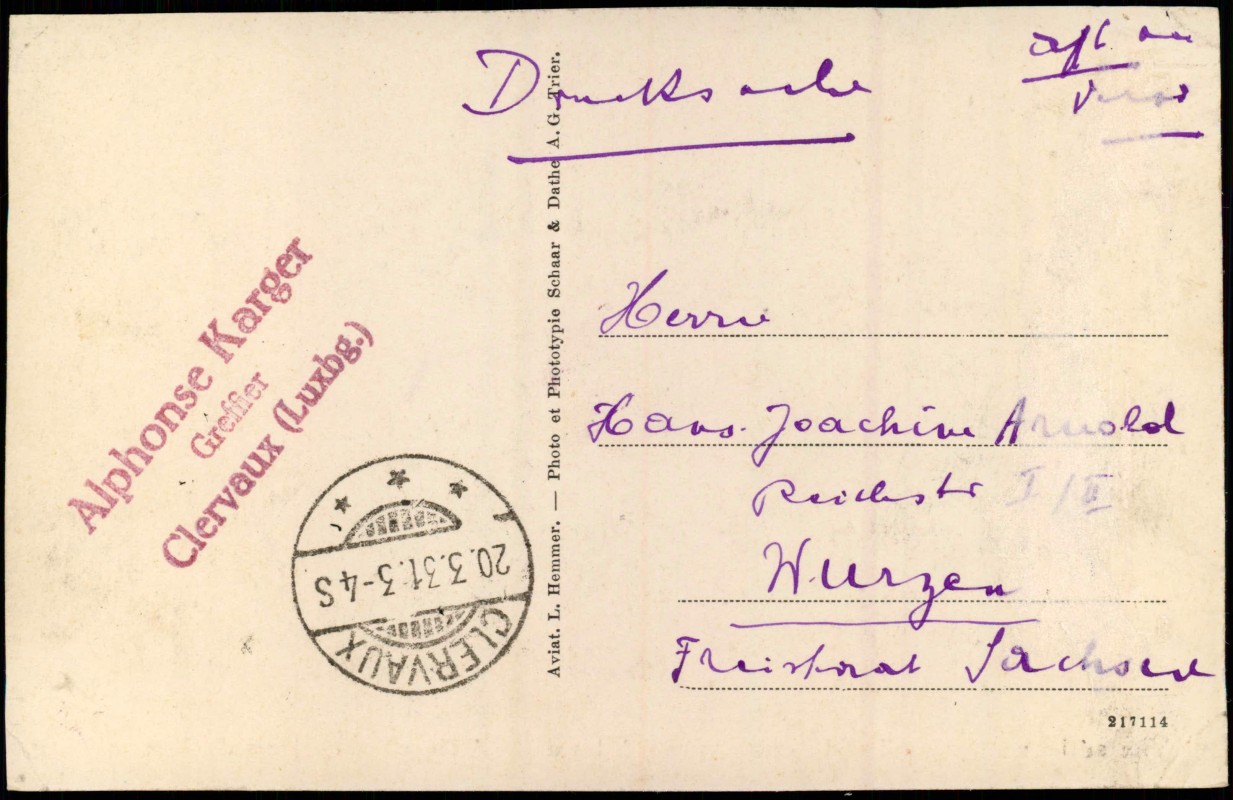 Drucksache
Alphonse Karger
Greffier
Clervaux (Luxbg.)
CLERVAUX
20.3.31.3-4S
Aviat. L. Hemmer. — Photo et Phototypie Schaar & Dathe A. G. Trier.
Herrn
Hans-Joachim Arnold
Reichstr I/II
Wurzen
Freistaat Sachsen
217114